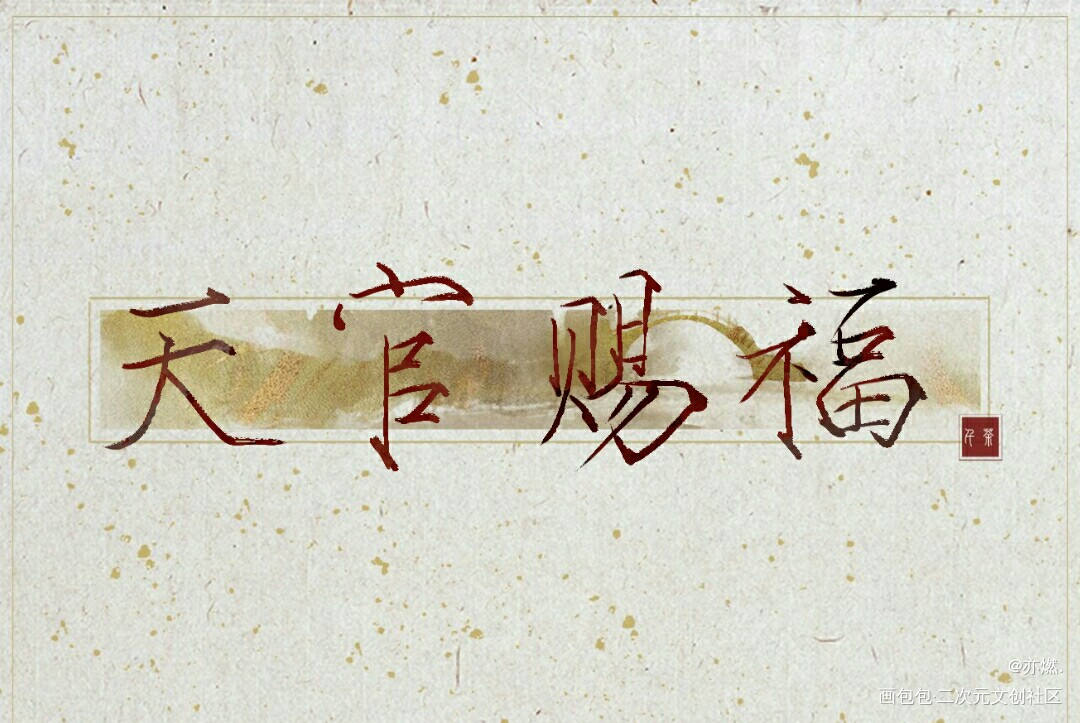 天官赐福
@亦燃.
画包包·二次元文创社区